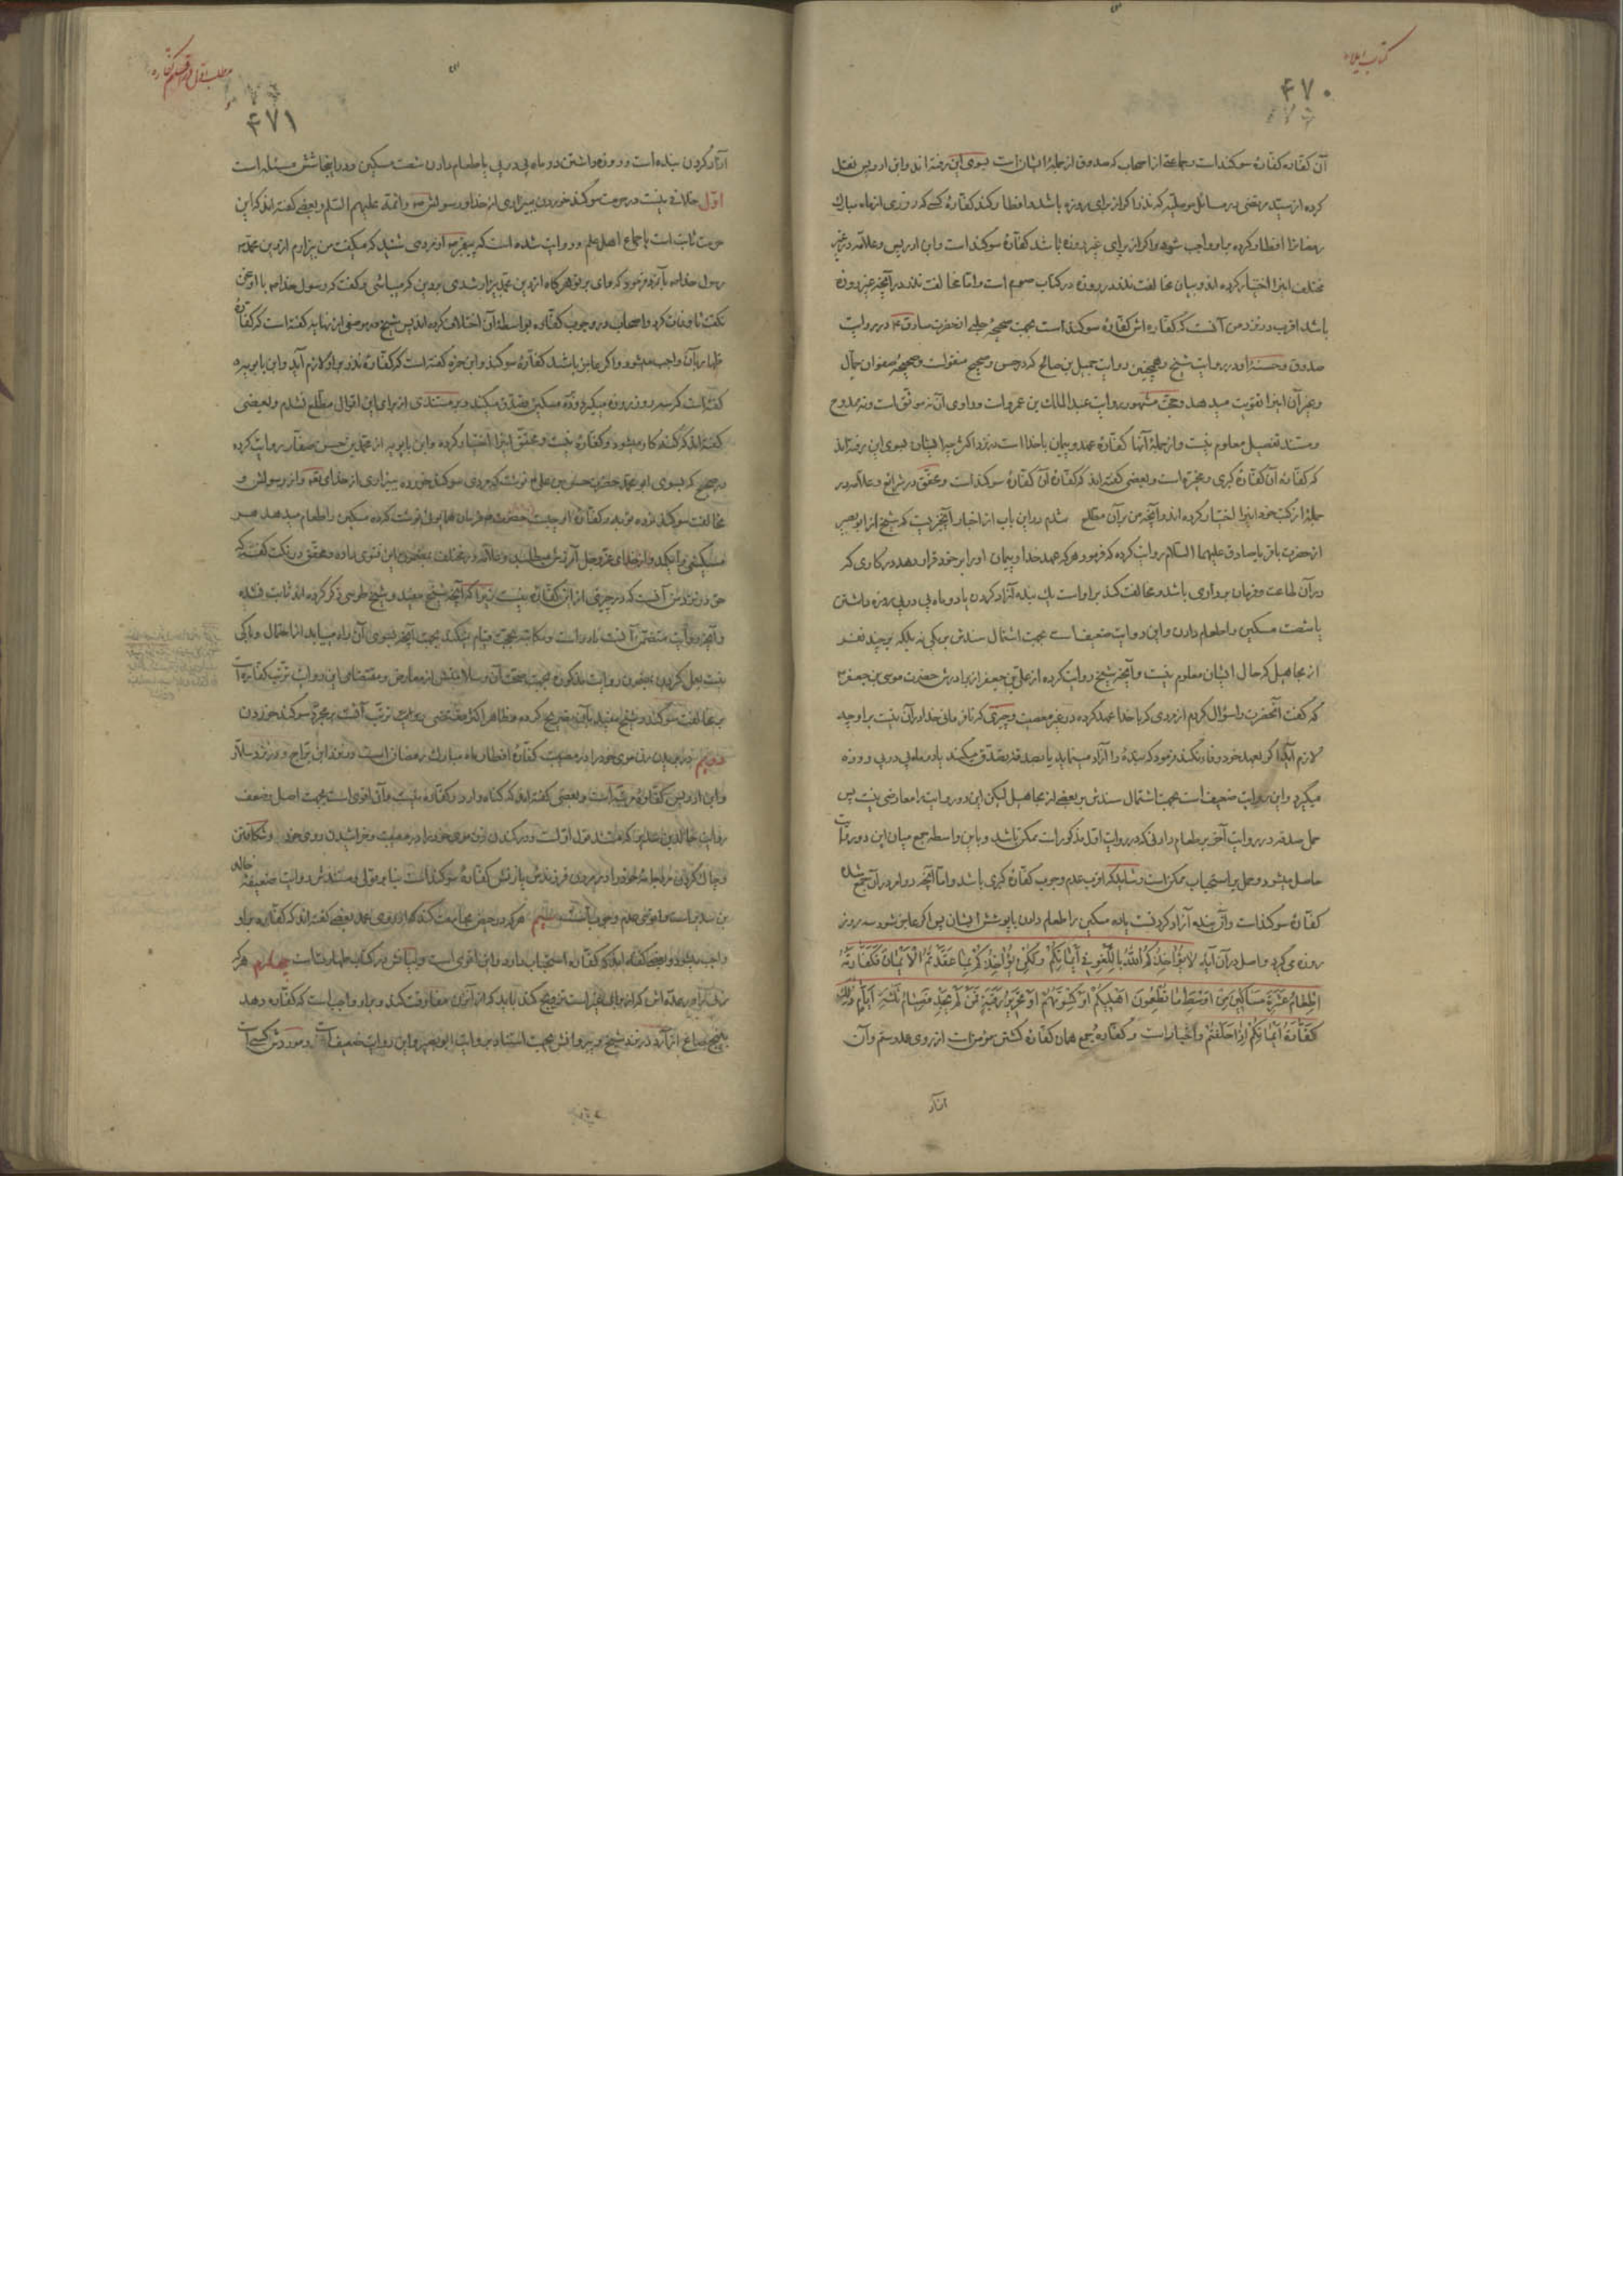 کتاب ایلاء
۴۷۰
آن کفاره کفارهٔ سوکند است و جماعتی از اصحاب که صدوق از جملهٔ ایشان است بسوی این رفته‌اند و ابن ادریس نقل
کرده از سید مرتضی در مسائل موصلیه که نذر اکر از برای روزه باشد و افطار کند کفارهٔ کسی که روزی از ماه مبارک
رمضانرا افطار کرده بر او واجب شود و اکر از برای غیر روزه باشد کفارهٔ سوکند است و ابن ادریس و علامه در غیر
مختلف اینرا اختیار کرده‌اند و بیان مخالفت نذر در روزه در کتاب صوم است و اما مخالفت نذر در آنچه غیر روزه
باشد اقرب در نزد من آنست که کفاره‌اش کفارهٔ سوکند است بجهت صحیحهٔ حلبی از حضرت صادق ع در روایت
صدوق و حسنهٔ او در روایت شیخ و همچنین روایت جمیل بن صالح که در حسن و صحیح منقولست و صحیحهٔ صفوان جمال
و غیر آن اینرا تقویت میدهد و حجت مشهور روایت عبدالملک بن عمرو است و راوی آن نه موثق است و نه ممدوح
و مستند تفصیل معلوم نیست و از جملهٔ آنها کفارهٔ عهد و پیمان با خدا است در نزد اکثر چه ایشان بسوی این رفته‌اند
که کفارهٔ آن کفارهٔ کبری و مخیره است و بعضی گفته‌اند که کفارهٔ آن کفارهٔ سوکند است و محقق در شرائع و علامه در
جملهٔ از کتب خود اینرا اختیار کرده‌اند و آنچه من بر آن مطلع شدم در این باب از اخبار آنچیزیست که شیخ از ابو بصیر
از حضرت باقر یا صادق علیهما السلام روایت کرده که فرمود هر که عهد خدا و پیمان او را بر خود قرار دهد در کاری که
در آن طاعت و فرمان برداری باشد و مخالفت کند بر او است یک بنده آزاد کردن یا دو ماه پی در پی روزه داشتن
یا شصت مسکین را طعام دادن و این روایت ضعیف است بجهت اشتمال سندش بر یکی نه بلکه بر چند نفر
از مجاهیل که حال ایشان معلوم نیست و آنچه شیخ روایت کرده از علی بن جعفر از برادرش حضرت موسی بن جعفر ع
که گفت آنحضرت را سؤال کردم از مردی که با خدا عهد کرده در غیر معصیت و چیزی که نافرمانی خدا در آن نیست بر او چه
لازم آید اگر بعهد خود وفا نکند فرمود که بندهٔ را آزاد مینماید یا بصدقه تصدق میکند یا دو ماه پی در پی روزه
میگیرد و این روایت ضعیف است بجهت اشتمال سندش بر بعضی از مجاهیل لیکن این دو روایت را معارضی نیست پس
حمل صدقه در روایت آخر بر طعام دادنی که در روایت اول مذکور است ممکن باشد و باین واسطه جمع میان این دو روایت
حاصل میشود و حمل بر استحباب ممکن است و شاید که اقرب عدم وجوب کفارهٔ کبری باشد و اما آنچه دو امر در آن جمع شده
کفارهٔ سوکند است و آن بنده آزاد کردنست یا ده مسکین را طعام دادن یا پوشش ایشان پس اکر عاجز شود سه روز
روزه می‌گیرد و اصل در آن آیه لَا یُؤَاخِذُکُمُ اللهُ بِاللَّغْوِ فِی أَیْمَانِکُمْ وَلَکِنْ یُؤَاخِذُکُمْ بِمَا عَقَّدْتُمُ الْأَیْمَانَ فَکَفَّارَتُهُ
إِطْعَامُ عَشَرَةِ مَسَاکِینَ مِنْ أَوْسَطِ مَا تُطْعِمُونَ أَهْلِیکُمْ أَوْ کِسْوَتُهُمْ أَوْ تَحْرِیرُ رَقَبَةٍ فَمَنْ لَمْ یَجِدْ فَصِیَامُ ثَلٰثَةِ أَیَّامٍ ذٰلِکَ
کَفَّارَةُ أَیْمَانِکُمْ إِذَا حَلَفْتُمْ و اخبار است و کفارهٔ جمع همان کفارهٔ کشتن مؤمن است از روی عدوستم و آن
آزاد
مطلب اول در اقسام کفاره
۴۷۱
آزاد کردن بنده است و روزه داشتن دو ماه پی در پی یا طعام دادن شصت مسکین و در اینجا شش مسئله است
اول خلافی نیست در حرمت سوکند خوردن به بیزاری از خدا و رسولش ص و ائمه علیهم السلام و بعضی گفته‌اند که این
حرمت ثابت است باجماع اهل علم و روایت شده است که پیغمبر ص از مردی شنید که میکفت من بیزارم از دین محمد ص
رسول خدا ص باو فرمود که وای بر تو هرکاه از دین محمد بیزار شدی بر دین که میباشی و کفت که رسول خدا ص با او سخن
نکفت تا وفات کرد و اصحاب در وجوب کفاره بواسطهٔ آن اختلاف کرده‌اند پس شیخ در موضعی از نهایه کفته است که کفارهٔ
ظهار بآن واجب میشود و اکر عاجز باشد کفارهٔ سوکند و ابن حمزه کفته است که کفارهٔ نذر بر او لازم آید و ابن بابویه
کفته است که سه روز روزه میگیرد و بر ده مسکین تصدق میکند و بر مستندی از برای این اقوال مطلع نشدم و بعضی
کفته‌اند که کنه‌کار میشود و کفاره نیست و محقق اینرا اختیار کرده و ابن بابویه از محمد بن حسن صفار روایت کرده
در صحیح که بسوی ابو محمد حضرت حسن بن علی ع نوشت که مردی سوکند خورده به بیزاری از خدای تعالی و از رسولش و
مخالفت سوکند نموده توبه و کفارهٔ او چیست حضرت ع فرمان همایونی نوشت که ده مسکین را طعام میدهد هر
مسکینی را یکمد و از خدای عز و جل آمرزش میطلبد و علامه در مختلف بمضمون این فتوی داده و محقق در نکت کفته که
حق در نزد من آنست که در چیزی از این کفاره نیست زیرا که آنچه شیخ مفید و شیخ طوسی ذکر کرده‌اند ثابت نشده
و آنچه روایت متضمن آنست نادر است و مکاتبه بحجت قیام نمیکند بجهت آنچه بسوی آن راه مییابد از احتمال و باکی
نیست بعمل کردن بمضمون روایت مذکوره بجهت صحت آن و سلامتش از معارض و مقتضای این روایت ترتب کفاره است
بر مخالفت سوکند و شیخ مفید باین تصریح کرده و ظاهر اکثر مقتضی روایت ترتب آنست بر مجرد سوکند خوردن
دویم در بریدن زن موی خود را در مصیبت کفارهٔ افطار ماه مبارک رمضان است در نزد ابن براج و در نزد سلار
و ابن ادریس کفارهٔ مرتبه است و بعضی کفته‌اند که کناه دارد و کفاره نیست و آن اقوی است بجهت اصل و ضعف
روایت خالد بن سدیر که مستند قول اول است و در کندن زن موی خود را در مصیبت و خراشیدن روی خود و شکافتن
و چاک کردن مرد جامهٔ خود را در مردن فرزندش یا زنش کفارهٔ سوکند است بنا بر قولی و مستندش روایت ضعیفهٔ خالد
بن سدیر است و اقوی عدم وجوب است سیم هر که در حیض مجامعت کند با زن از روی عمد بعضی کفته‌اند که کفاره بر او
واجب میشود و بعضی کفته‌اند که کفاره استحباب دارد و این اقوی است و بیانش در کتاب طهارتست چهارم هر که
زنیرا در عده‌اش که از برای غیر است تزویج کند باید که از آن زن مفارقت کند و بر او واجب است که کفاره دهد
بپنج صاع از آرد در نزد شیخ و پیروانش بجهت استناد بروایت ابو بصیر و این روایت ضعیف است و موردش کسی است